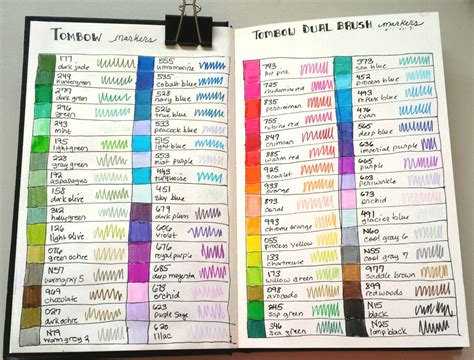 TOMBOW markers
177
dark jade
249
hunter green
277
dark green
296
green
243
mint
195
light green
228
gray green
192
asparagus
158
dark olive
242
126
light olive
679
N57
warm gray 5
969
chocolate
027
dark ochre
N79
warm gray 2
555
ultramarine
535
cobalt blue
528
navy blue
526
true blue
533
peacock blue
515
light blue
553
mist purple
443
turquoise
451
sky blue
679
dark plum
606
violet
676
royal purple
685
deep magenta
683
orchid
623
purple sage
620
lilac
TOMBOW DUAL BRUSH markers
793
hot pink
725
rhodamine red
835
persimmon
905
rubine red
847
crimson
885
warm red
925
scarlet
933
orange
873
coral
993
chrome orange
055
process yellow
133
chartreuse
173
willow green
098
avocado
245
sap green
346
sea green
373
sea blue
452
process blue
493
reflex blue
433
cyan
565
deep blue
636
imperial purple
665
purple
603
periwinkle
673
orchid
491
glacier blue
N60
cool gray 6
N95
cool gray 1
977
saddle brown
899
redwood
N15
black
N25
lamp black